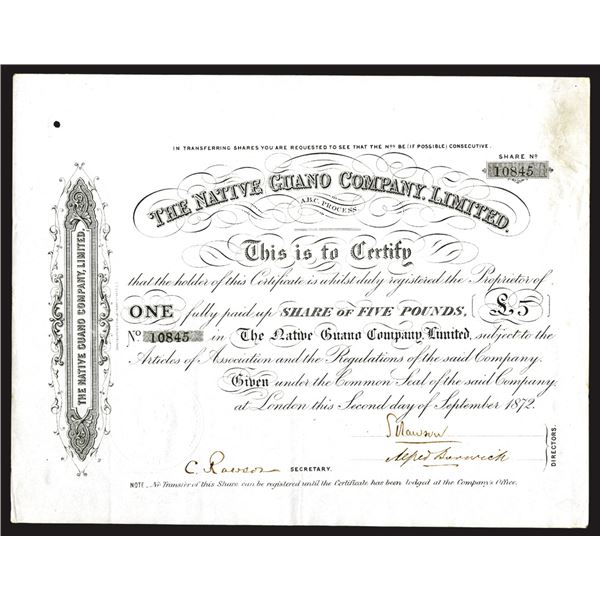 IN TRANSFERRING SHARES YOU ARE REQUESTED TO SEE THAT THE Nos BE (IF POSSIBLE) CONSECUTIVE.
SHARE No
10845
THE NATIVE GUANO COMPANY, LIMITED.
A.B.C. PROCESS
This is to Certify
that the holder of this Certificate is whilst duly registered the Proprietor of
ONE fully paid up SHARE OF FIVE POUNDS, £5
No 10845 in The Native Guano Company, Limited, subject to the
Articles of Association and the Regulations of the said Company.
Given under the Common Seal of the said Company
at London this Second day of September 1872.
Rawson
Alfred Barwick
DIRECTORS.
C. Rawson SECRETARY.
NOTE. No Transfer of this Share can be registered until the Certificate has been lodged at the Company's Office.
THE NATIVE GUANO COMPANY, LIMITED